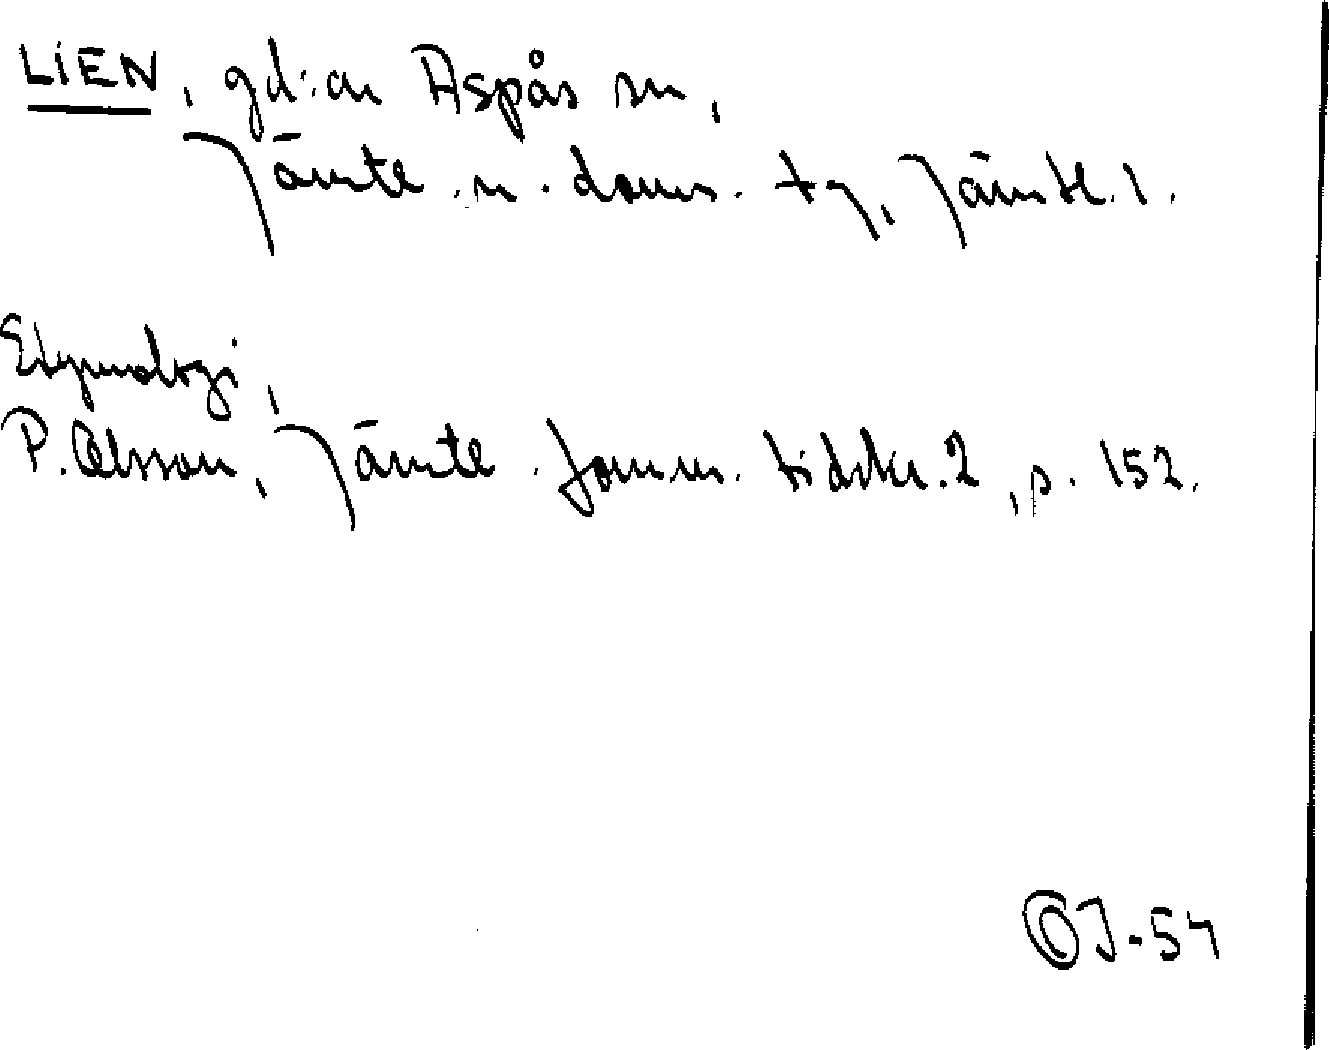 LIEN, gd:ar Aspås sn,
Jämte. n. doms. tg, Jämtl. l.
Etymologi,
P. Olsson, Jämtl. fornm. tidskr. 2, s. 152.
J-54